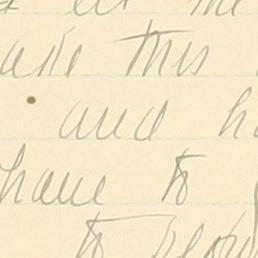 let me
take this
and h
have to
to